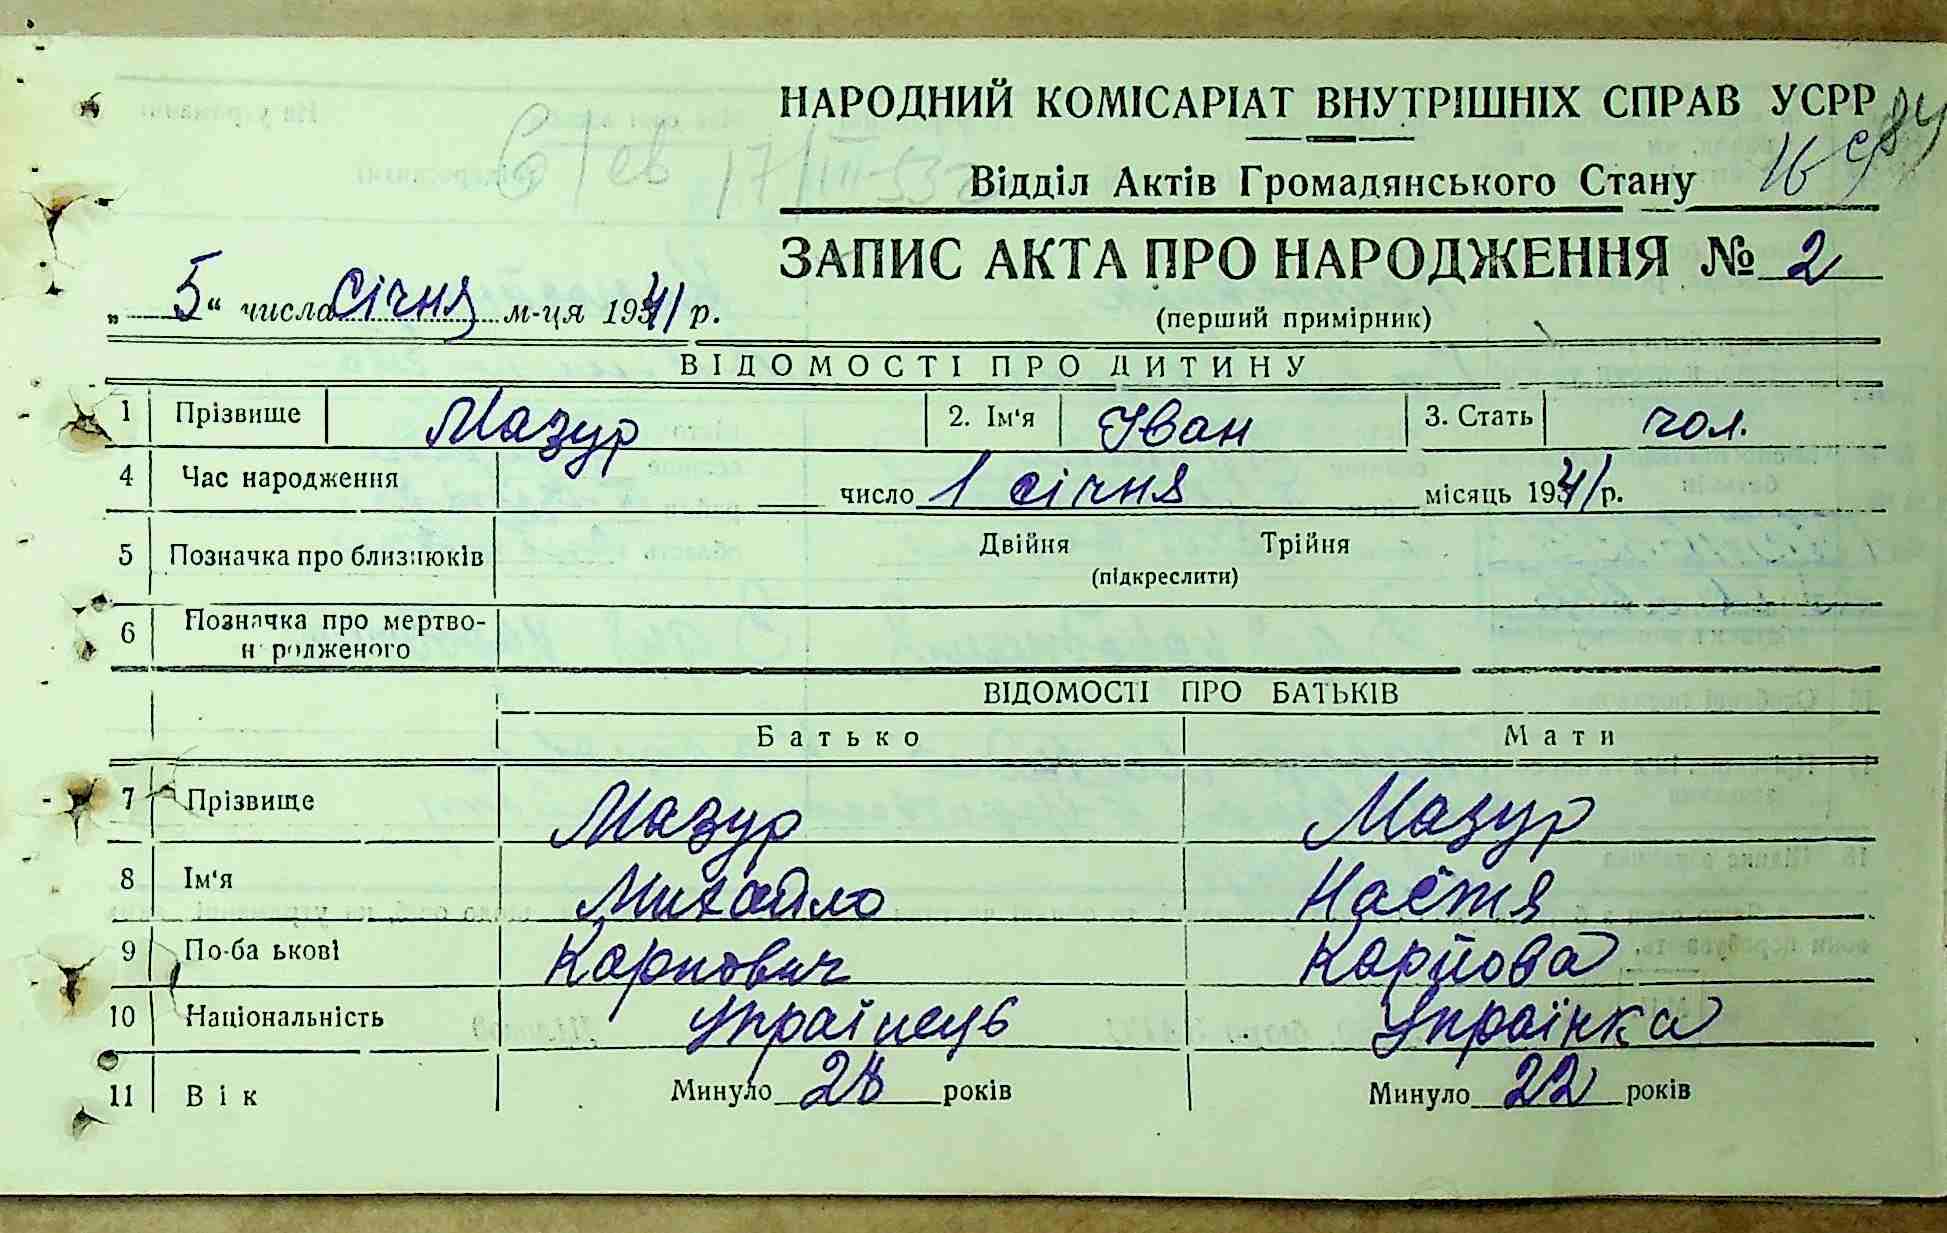 НАРОДНИЙ КОМІСАРІАТ ВНУТРІШНІХ СПРАВ УСРР
Відділ Актів Громадянського Стану
ЗАПИС АКТА ПРО НАРОДЖЕННЯ № 2
„ 5 “ числа січня м-ця 1941 р.
(перший примірник)
ВІДОМОСТІ ПРО ДИТИНУ
1 Прізвище Мазур 2. Ім'я Іван 3. Стать чол.
4 Час народження число 1 січня місяць 1941 р.
5 Позначка про близнюків Двійня Трійня
(підкреслити)
6 Позначка про мертво-
н родженого
ВІДОМОСТІ ПРО БАТЬКІВ
Батько Мати
7 Прізвище Мазур Мазур
8 Ім'я Михайло Настя
9 По-ба ькові Карпович Карпова
10 Національність Українець Українка
11 Вік Минуло 28 років Минуло 22 років